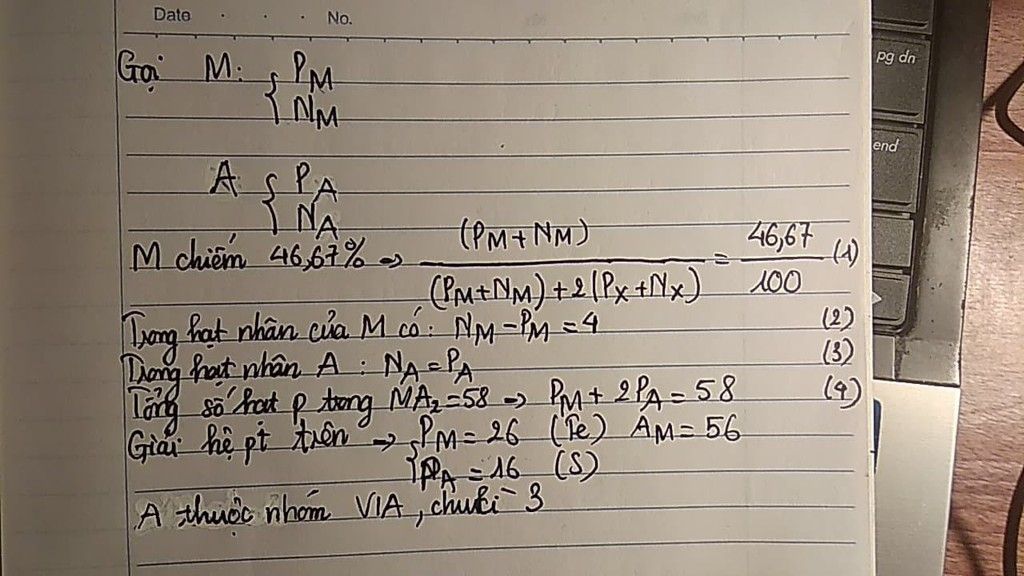 Date . . . No.
pg dn
Gọi M: { PM
NM
end
A { PA
NA
M chiếm 46,67% → (PM+NM) / (PM+NM)+2(PX+NX) = 46,67 / 100 (1)
Trong hạt nhân của M có: NM-PM=4 (2)
Trong hạt nhân A : NA=PA (3)
Tổng số hạt p trong MA2=58 → PM+2PA=58 (4)
Giải hệ pt trên → { PM=26 (Fe) AM=56
PA=16 (S)
A thuộc nhóm VIA, 3